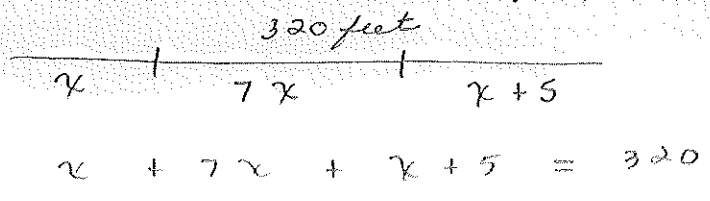 320 feet
x 7x x + 5
x + 7x + x + 5 = 320